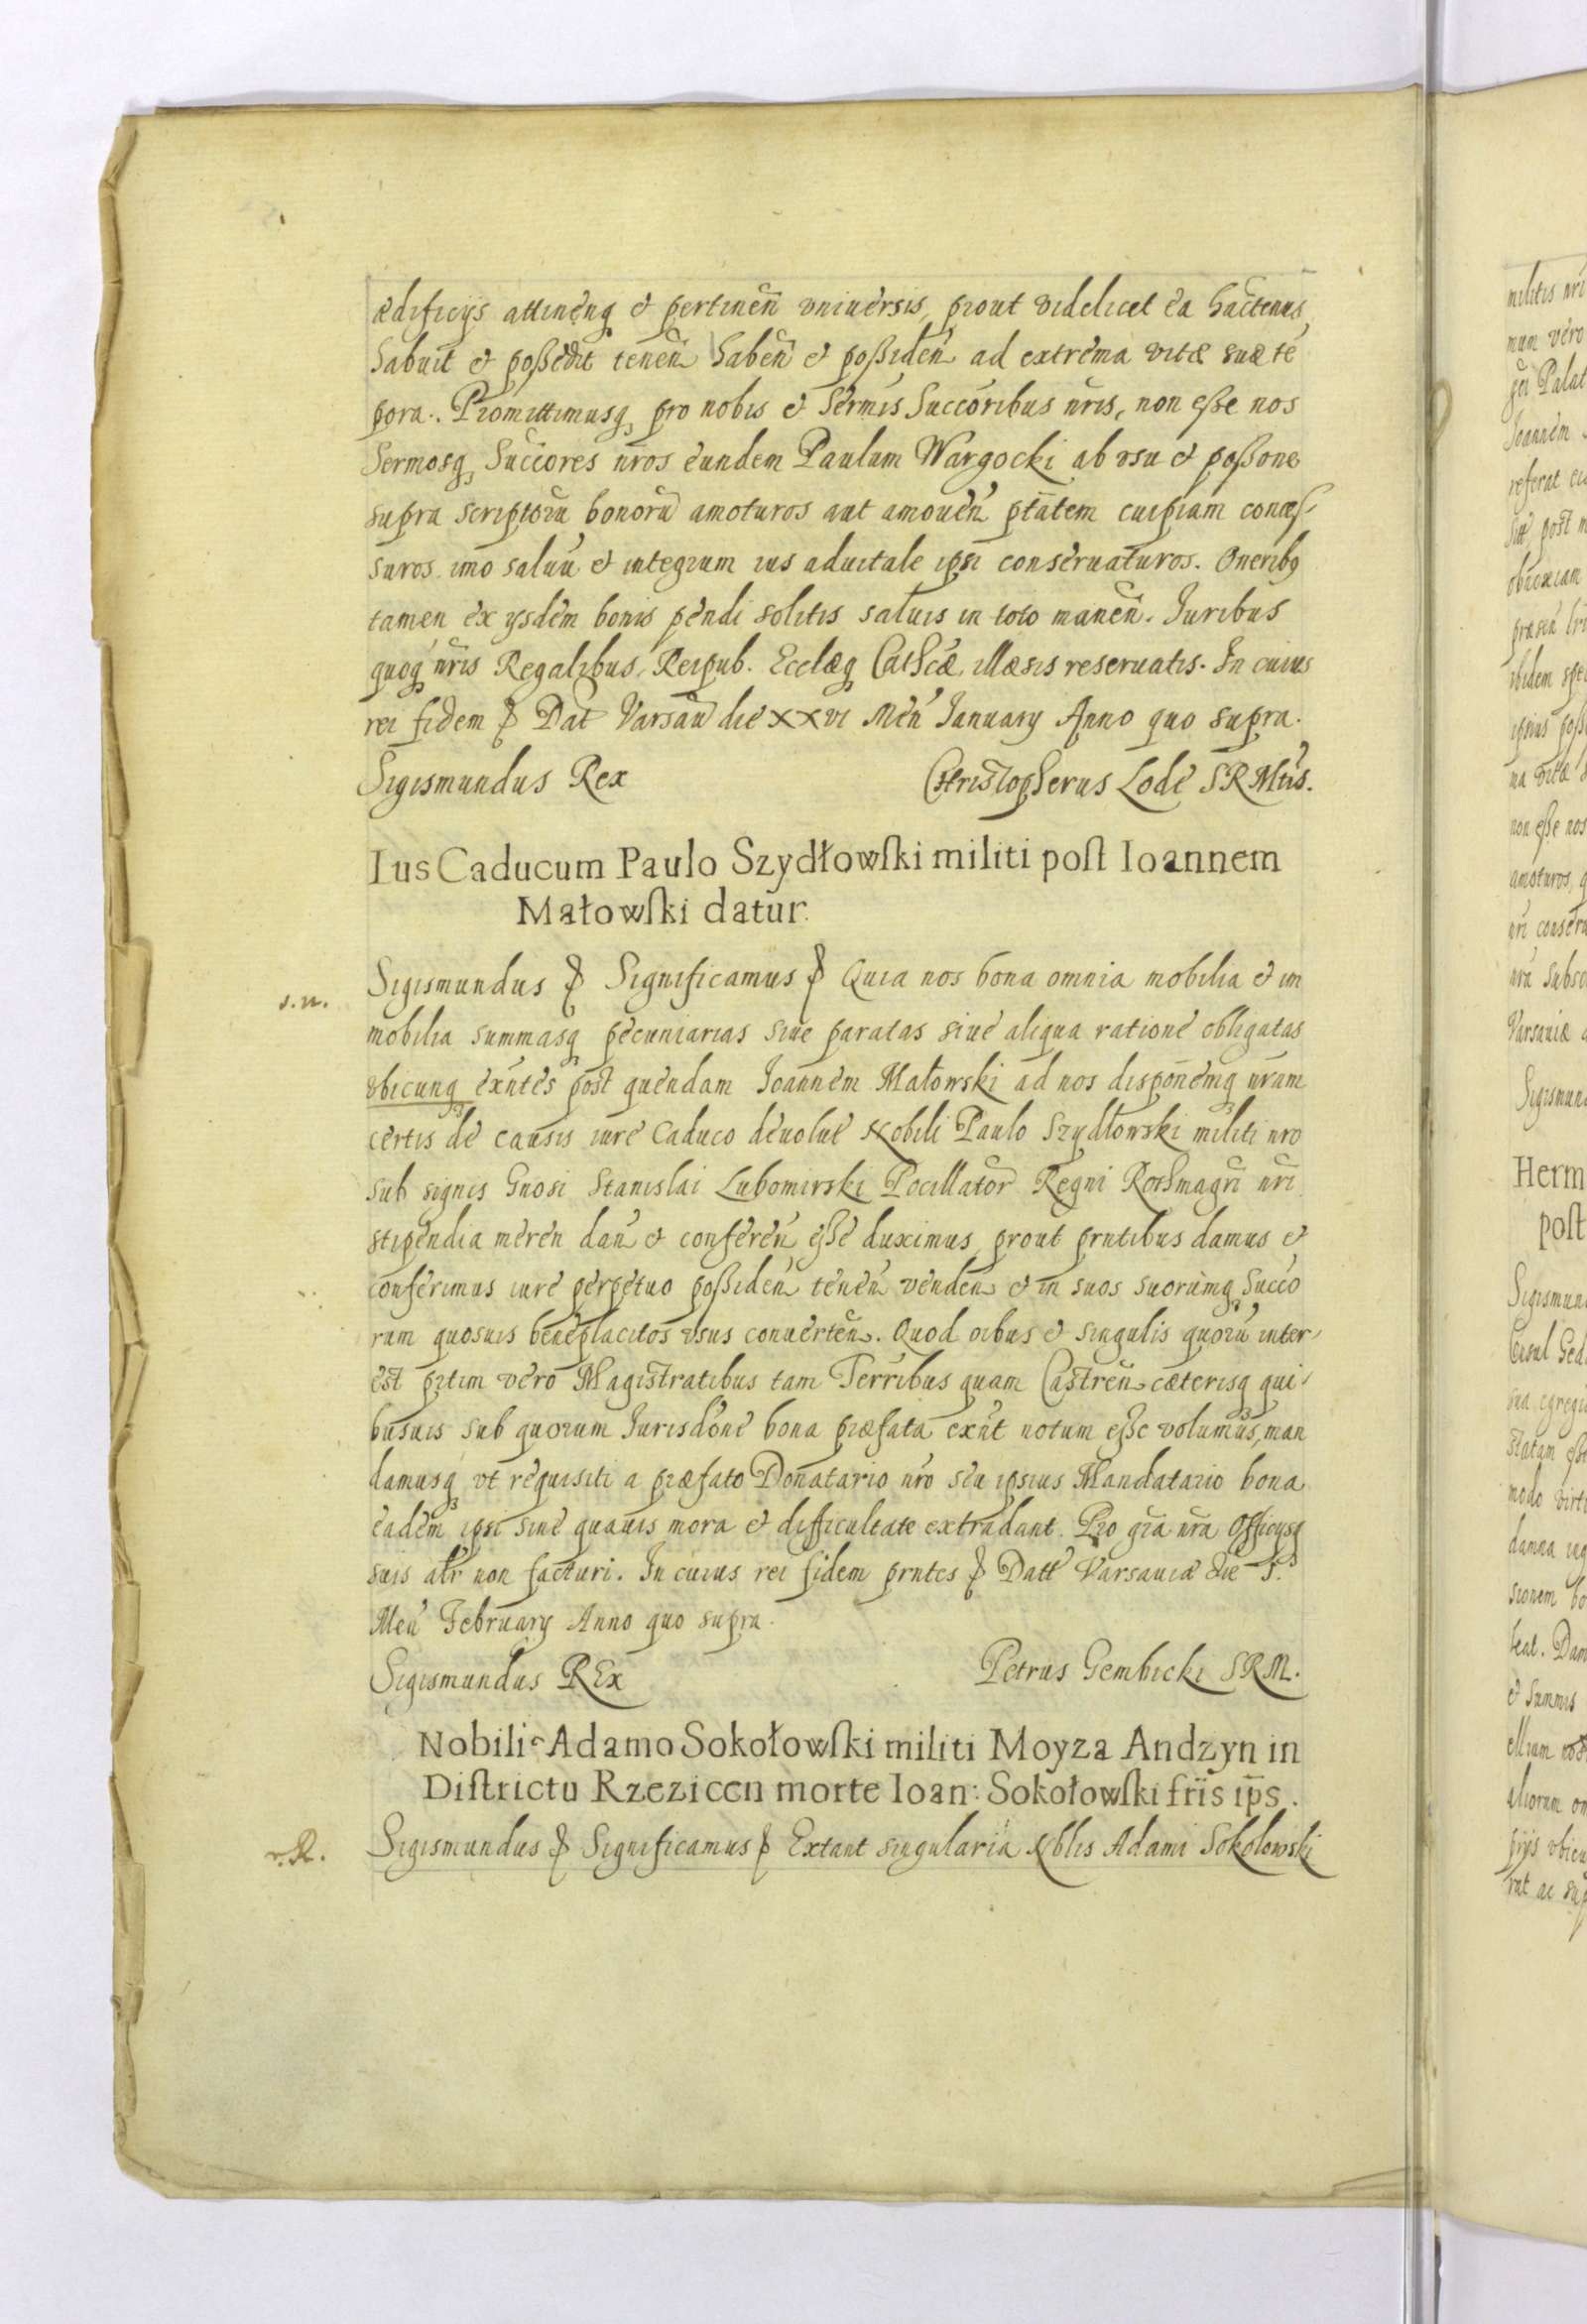 ædificÿs attinenq̨ & pertinen̄ vniuersis, prout videlicet ea hactenus
habuit & poßedit tenen̄ haben̄ & poßiden̄ ad extrema vitæ suæ te
pora. Promittimusq̨ pro nobis & Sermis Succoribus nr̄is, non eße nos
Sermosq̨ Succores nr̄os eundem Paulum Wargocki ab vsu & poßone
supra scriptorū bonorū amoturos aut amouen̄ ptātem cuipiam conces-
suros imo saluū & integrum ius aduitale ipsi conseruaturos. Oneribq
tamen ex ysdem bonis pendi solitis saluis in toto manen̄. Iuribus
quoq̨ nr̄is Regalibus, Reipub. Ecclæq̨ Cathcæ illæsis reseruatis. In cuius
rei fidem & Dat Varsau die XXVI Men̄ Ianuarÿ Anno quo supra.
Sigismundus Rex Christopherus Lode SRMtis.
Ius Caducum Paulo Szydłowſki militi poſt Ioannem
Małowſki datur.
s.n.
Sigismundus & Significamus & Quia nos bona omnia mobilia & im
mobilia summasq̨ pecuniarias siue paratas siue aliqua ratione obligatas
vbicunq̨ exn̄tes post quendam Ioannem Małowski ad nos dispōnemq̨ nr̄am
certis de causis iure Caduco deuolut Nobili Paulo Szydłowski militi nro
sub signis Gnosi Stanislai Lubomirski Pocillator Regni Rothmagri nr̄i
stipendia meren dan̄ & conferen̄ eße duximus prout prntibus damus &
conferimus iure perpetuo poßiden̄ tenen̄ venden̄ & in suos suorumq̨ Succo
rum quosuis beneplacitos vsus conuerten̄. Quod oibus & singulis quorū inter-
est prtim vero Magistratibus tam Terribus quam Castren̄ cæterisq̨ qui-
busuis sub quorum Iurisdōne bona præfata exn̄t notum eße volumus, man
damusq̨ vt requisiti a præfato Donatario nr̄o seu ipsius Mandatario bona
eadem ipsi sine quauis mora & difficultate extradant. Pro gr̄a nr̄a Officÿsq̨
suis altr non facturi. In cuius rei fidem prntes & Datt Varsauiæ die
Men̄ Februarÿ Anno quo supra.
Sigismundus REx Petrus Gembicki SRM.
Nobili Adamo Sokołowſki militi Moyza Andzyn in
Diſtrictu Rzezicen morte Ioan: Sokołowſki fr̄is ip̄s.
r.R.
Sigismundus & Significamus & Extant singularia Nblis Adami Sokolowski
militis nr̄i
mum vero
Palat
Ioannem
referat
post
præsen
ibidem
ipsius poß
na vitæ
non eße nos
amoturos,
nr̄i conseru
Varsauiæ
Sigismun
Herm
poſt
Sigismun
Ged
sua egregi
statam
modo virt
damna
sionem bo
Dam
& Summis
aliorum
vbicu